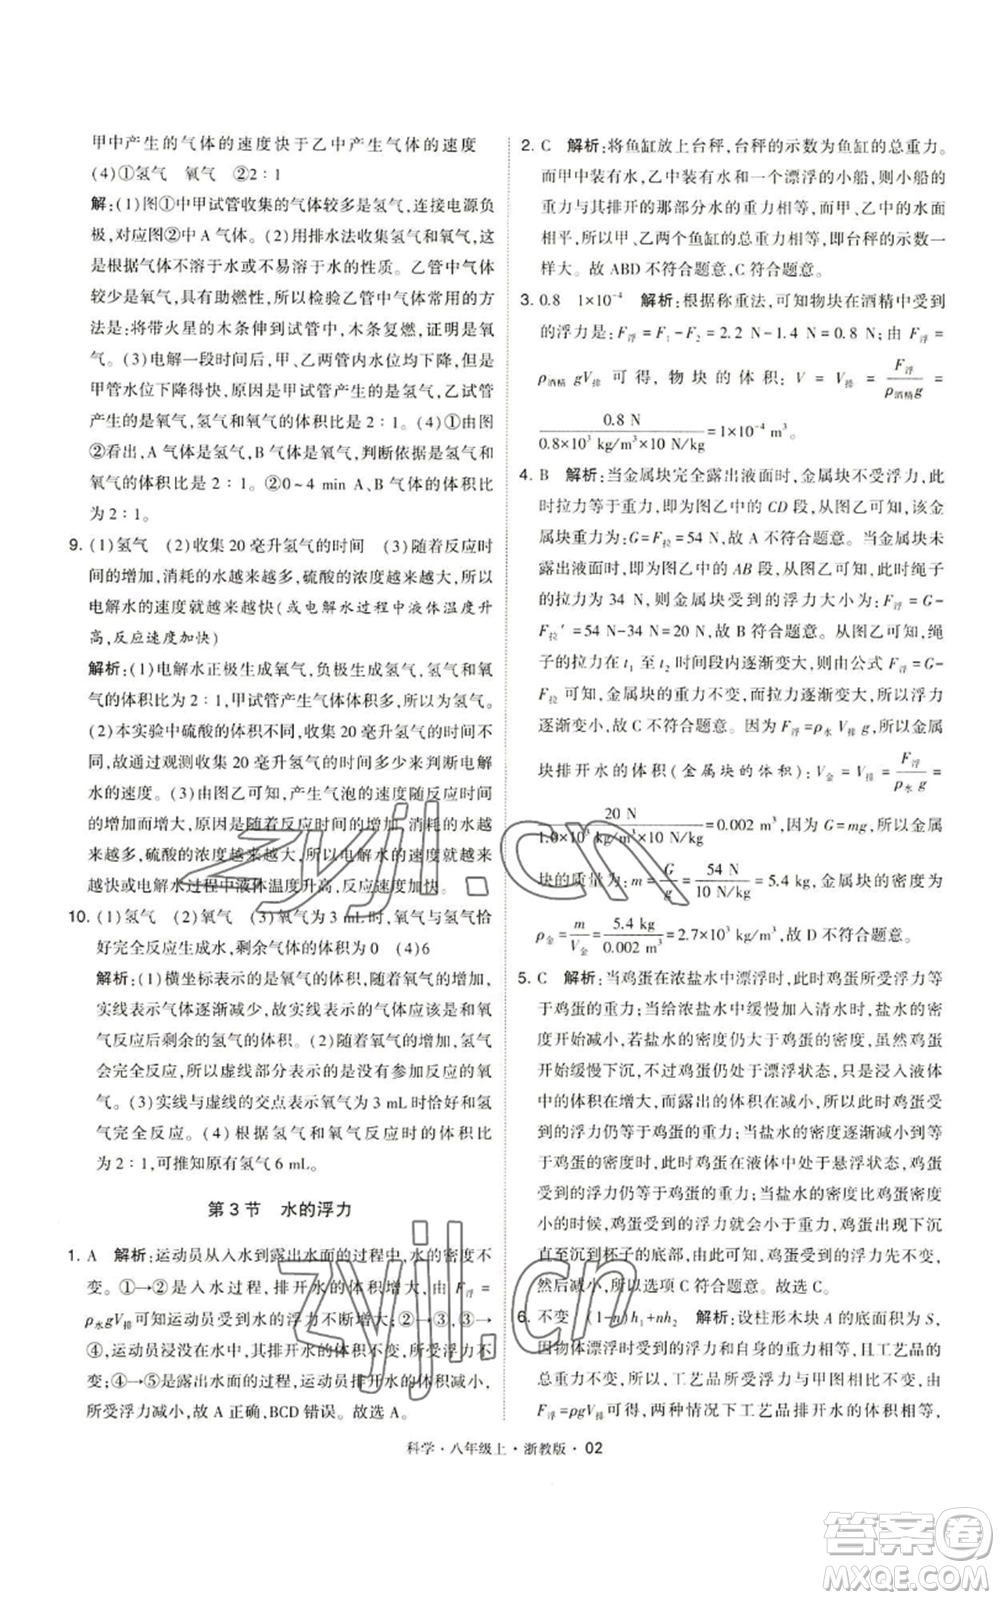 甲中产生的气体的速度快于乙中产生气体的速度
(4)①氢气　氧气　②2∶1
解:(1)图①中甲试管收集的气体较多是氢气,连接电源负
极,对应图②中 A 气体。(2)用排水法收集氢气和氧气,
这是根据气体不溶于水或不易溶于水的性质。乙管中气体
较少是氧气,具有助燃性,所以检验乙管中气体常用的方法
是:将带火星的木条伸到试管中,木条复燃,证明是氧
气。(3)电解一段时间后,甲、乙两管内水位均下降,但是
甲管水位下降得快,原因是甲试管产生的是氢气,乙试管产
生的是氧气,氢气和氧气的体积比是 2∶1。(4)①由图
②看出,A 气体是氢气,B 气体是氧气,判断依据是氢气和
氧气的体积比是 2∶1。②0~4 min A、B 气体的体积比
为 2∶1。
9. (1)氢气　(2)收集 20 毫升氢气的时间　(3)随着反应时
间的增加,消耗的水越来越多,硫酸的浓度越来越大,所以
电解水的速度就越来越快(或电解水过程中液体温度升
高,反应速度加快)
解析:(1)电解水正极生成氧气,负极生成氢气,氢气和氧
气的体积比为 2∶1,甲试管产生气体体积多,所以为氢气。
(2)本实验中硫酸的体积不同,收集 20 毫升氢气的时间不
同,故通过观测收集 20 毫升氢气的时间多少来判断电解水
的速度。(3)由图乙可知,产生气泡的速度随着反应时间
的增加而增大,原因是随着反应时间的增加,消耗的水越来
越多,硫酸的浓度越来越大,所以电解水的速度就越来
越快或电解水过程中液体温度升高,反应速度加快。
10. (1)氢气　(2)氧气　(3)氧气为 3 mL时,氧气与氢气恰
好完全反应生成水,剩余气体的体积为 0　(4)6
解析:(1)横坐标表示的是氧气的体积,随着氧气的增大,
实线表示气体逐渐减小,所以实线表示的气体应该是氧气反
应后剩余的氢气的体积。(2)虚线表示的气体体积随着氧
气的体积增大而增大,则表示的是参加反应的氧
气。(3)实线与虚线的交点表示氧气为 3 mL时恰好和氢
气完全反应。(4)根据氢气和氧气的体积比
为 2∶1,可推知原有氢气 6 mL。
第 3 节　水的浮力
1. A　解析:运动员从入水到露出水面的过程中,水的密度不
变。①→②是入水过程,排开水的体积增大,由 F浮 =
ρ水gV排 可知运动员受到水的浮力不断增大;②→③,③→
④,运动员浸没在水中,其排开水的体积不变,所受浮力不
变;④→⑤是露出水面的过程,排开水的体积减小,
所受浮力减小。故 A 正确,BCD 错误。故选 A。
2. C　解析:将鱼缸放上台秤,台秤的示数为鱼缸的总重力。
而甲中装有水,乙中装有水和一个漂浮的小船,小船的
重力与其排开的那部分水的重力相等,而甲、乙中的水面
相平,所以甲、乙两个鱼缸的总重力相等,即台秤的示数一
样大。故 ABD 不符合题意,C 符合题意。
3. 0.8　1×10⁻⁴　解析:根据称重法,可知物块在酒精中受到
的浮力是:F浮 = F₁−F₂ = 2.2 N−1.4 N = 0.8 N;由 F浮 =
ρ酒精 gV排 可得,物块的体积:V = V排 = F浮/ρ酒精g =
0.8 N/0.8×10³ kg/m³×10 N/kg = 1×10⁻⁴ m³。
4. B　解析:当金属块完全露出液面时,金属块不受浮力,此
时拉力等于重力,即为图乙中的 CD 段,从图乙可知,该金
属块重力为:G=F拉=54 N,故 A 不符合题意。当金属块未
露出液面时,即为图乙中的 AB 段,从图乙可知,此时绳子
的拉力为 34 N,则金属块受到的浮力大小为:F浮=G−
F拉′=54 N−34 N=20 N,故 B 符合题意。从图乙可知,绳
子的拉力在 t₁ 至 t₂ 时间段内逐渐变大,则由公式 F浮=G−
F拉 可知,金属块的重力不变,而拉力逐渐变大,所以浮力
逐渐变小,故 C 不符合题意。因为 F浮=ρ水 V排 g,所以金属
块排开水的体积(金属块的体积):V金=V排=F浮/ρ水 g=
20 N/1.0×10³ kg/m³×10 N/kg=0.002 m³,因为 G=mg,所以金属
块的质量为:m=G/g=54 N/10 N/kg=5.4 kg,金属块的密度为:
ρ金=m/V金=5.4 kg/0.002 m³=2.7×10³ kg/m³,故 D 不符合题意。
5. C　解析:当鸡蛋在浓盐水中漂浮时,此时鸡蛋所受浮力等
于鸡蛋的重力;当给浓盐水中缓慢加入清水时,盐水的密
度开始减小,若盐水的密度仍大于鸡蛋的密度,虽然鸡蛋
开始缓慢下沉,但鸡蛋仍会处于漂浮状态,只是浸在液体
中的体积在增大,而露出的体积在减小,所以此时鸡蛋的
浮力仍等于鸡蛋的重力;当盐水的密度等于鸡蛋
的密度时,此时鸡蛋在液体中处于悬浮状态,鸡蛋受到
的浮力仍等于鸡蛋的重力;当盐水的密度比鸡蛋的密度
小的时候,浮力开始减小,鸡蛋受到的浮力小于重力,开始下沉
直至沉到杯子的底部。所以整个过程中,鸡蛋所受浮力先不变,
然后减小,所以选项 C 符合题意。故选 C。
6. 不变　(1−n)h₁+nh₂　解析:设柱形木块 A 的底面积为 S,
因物体漂浮时受到的浮力和自身的重力相等,且工艺品的
总重力不变,所以,工艺品所受的浮力与甲图相等,由
F浮=ρgV排可知,两种情况下工艺品排开水的体积相等,
科学·八年级上·浙教版·02
zyjl.cn
zyjl.cn
答案卷
MXQE.COM